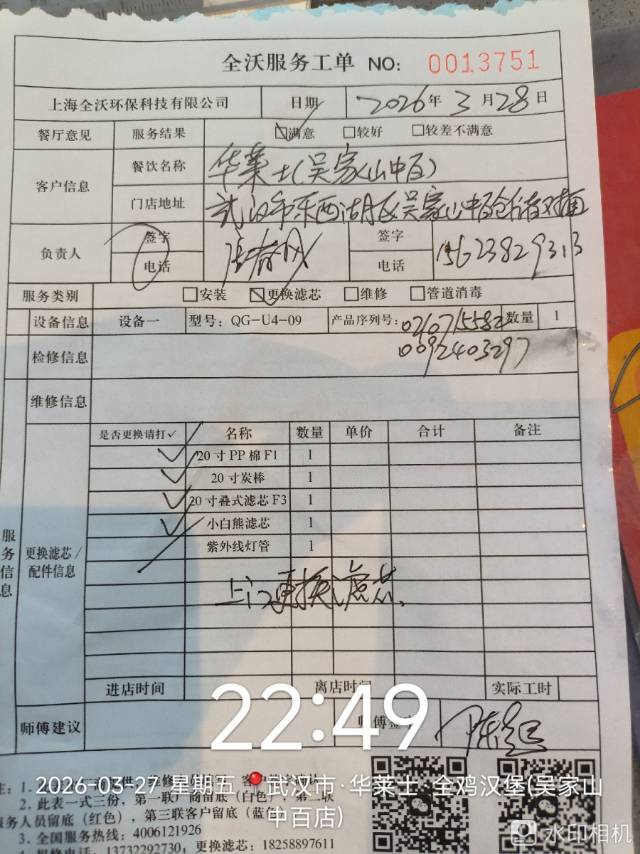 全沃服务工单 NO: 0013751
上海全沃环保科技有限公司 日期 2026年3月28日
餐厅意见 服务结果 满意 较好 较差不满意
客户信息 餐饮名称 华莱士(吴家山中百)
门店地址 武汉市东西湖区吴家山中百仓储对面
负责人 签字 电话 签字 电话 15623829313
服务类别 安装 更换滤芯 维修 管道消毒
设备信息 设备一 型号: QG-U4-09 产品序列号: 0210715582 数量 1
0092403297
检修信息
维修信息
服务信息 更换滤芯/配件信息
是否更换请打✓ 名称 数量 单价 合计 备注
✓ 20寸PP棉F1 1
✓ 20寸炭棒 1
✓ 20寸叠式滤芯F3 1
✓ 小白熊滤芯 1
紫外线灯管 1
上门更换滤芯
进店时间 离店时间 实际工时
师傅建议 师傅签
22:49
2026-03-27 星期五 武汉市·华莱士·全鸡汉堡(吴家山中百店)
2. 此表一式三份，第一联厂商留底（白色），第二联
服务人员留底（红色），第三联客户留底（蓝色）
3. 全国服务热线: 4006121926
报修电话: 13732292730; 更换滤芯: 18258897611
水印相机